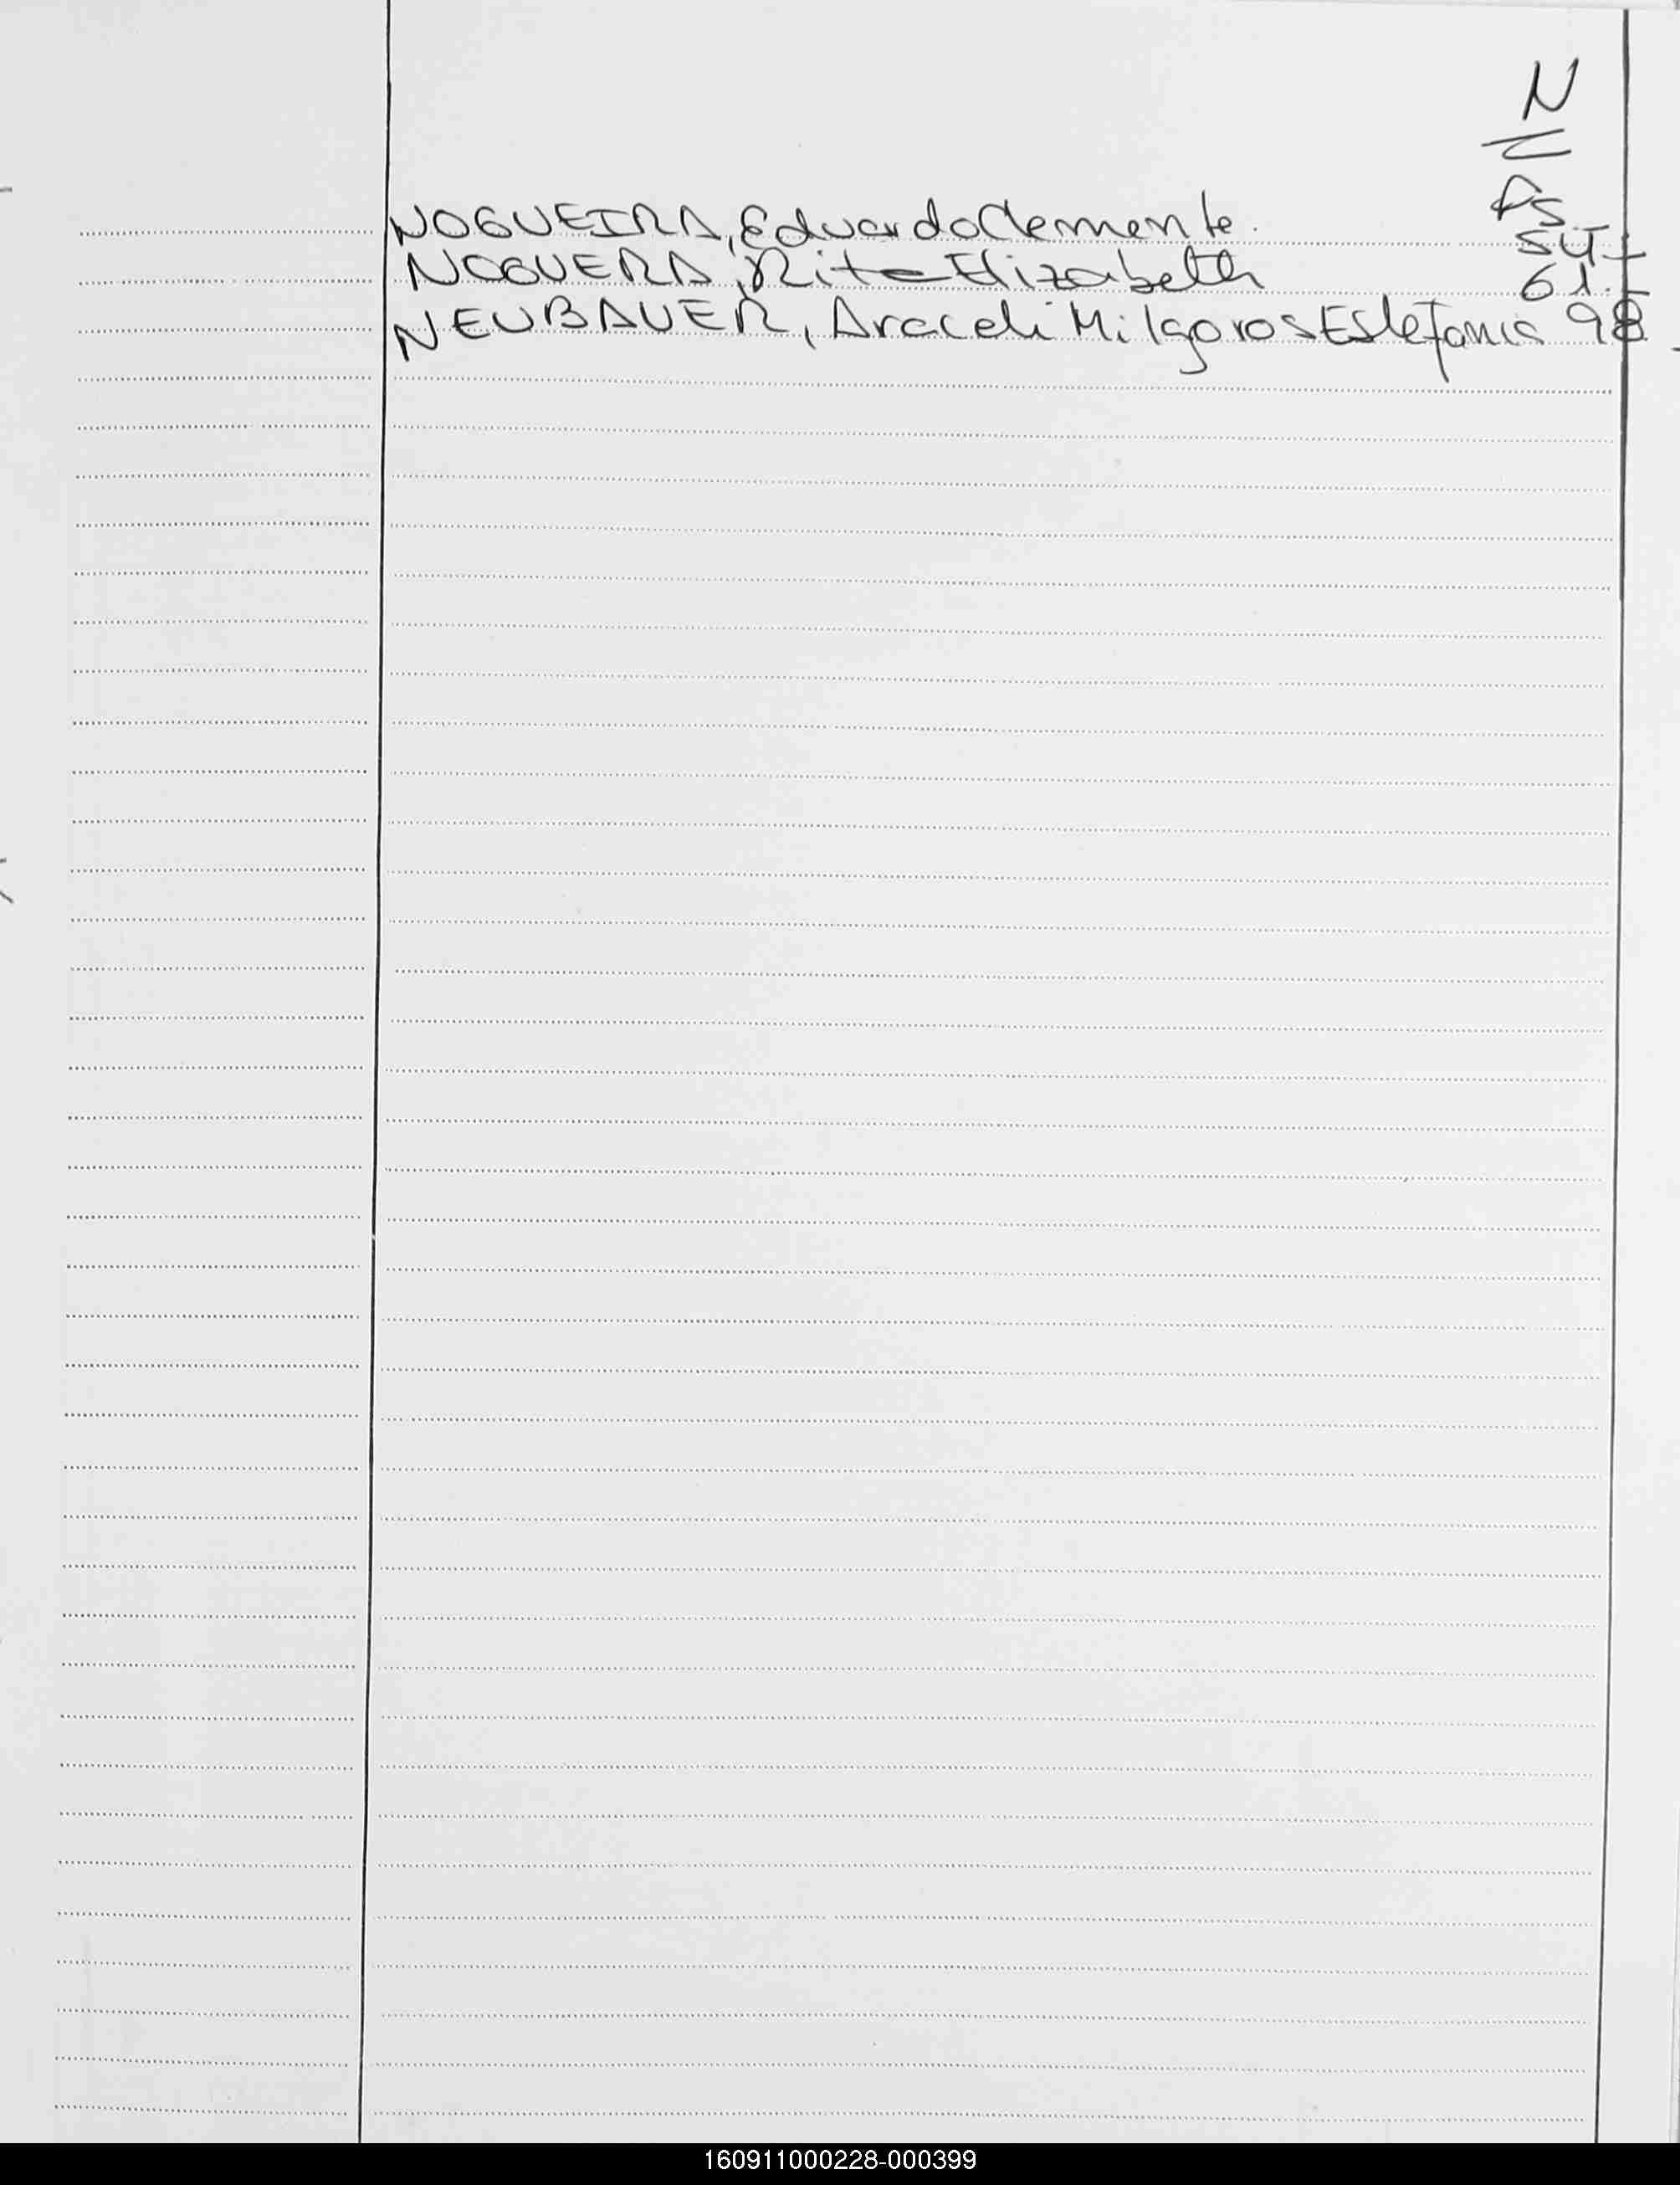 N
Fs
NOGUEIRA, Eduardo Clemente. 54
NOGUERA, Rita Elizabeth 61
NEUBAUER, Araceli Milgoros Estefania 98
160911000228-000399